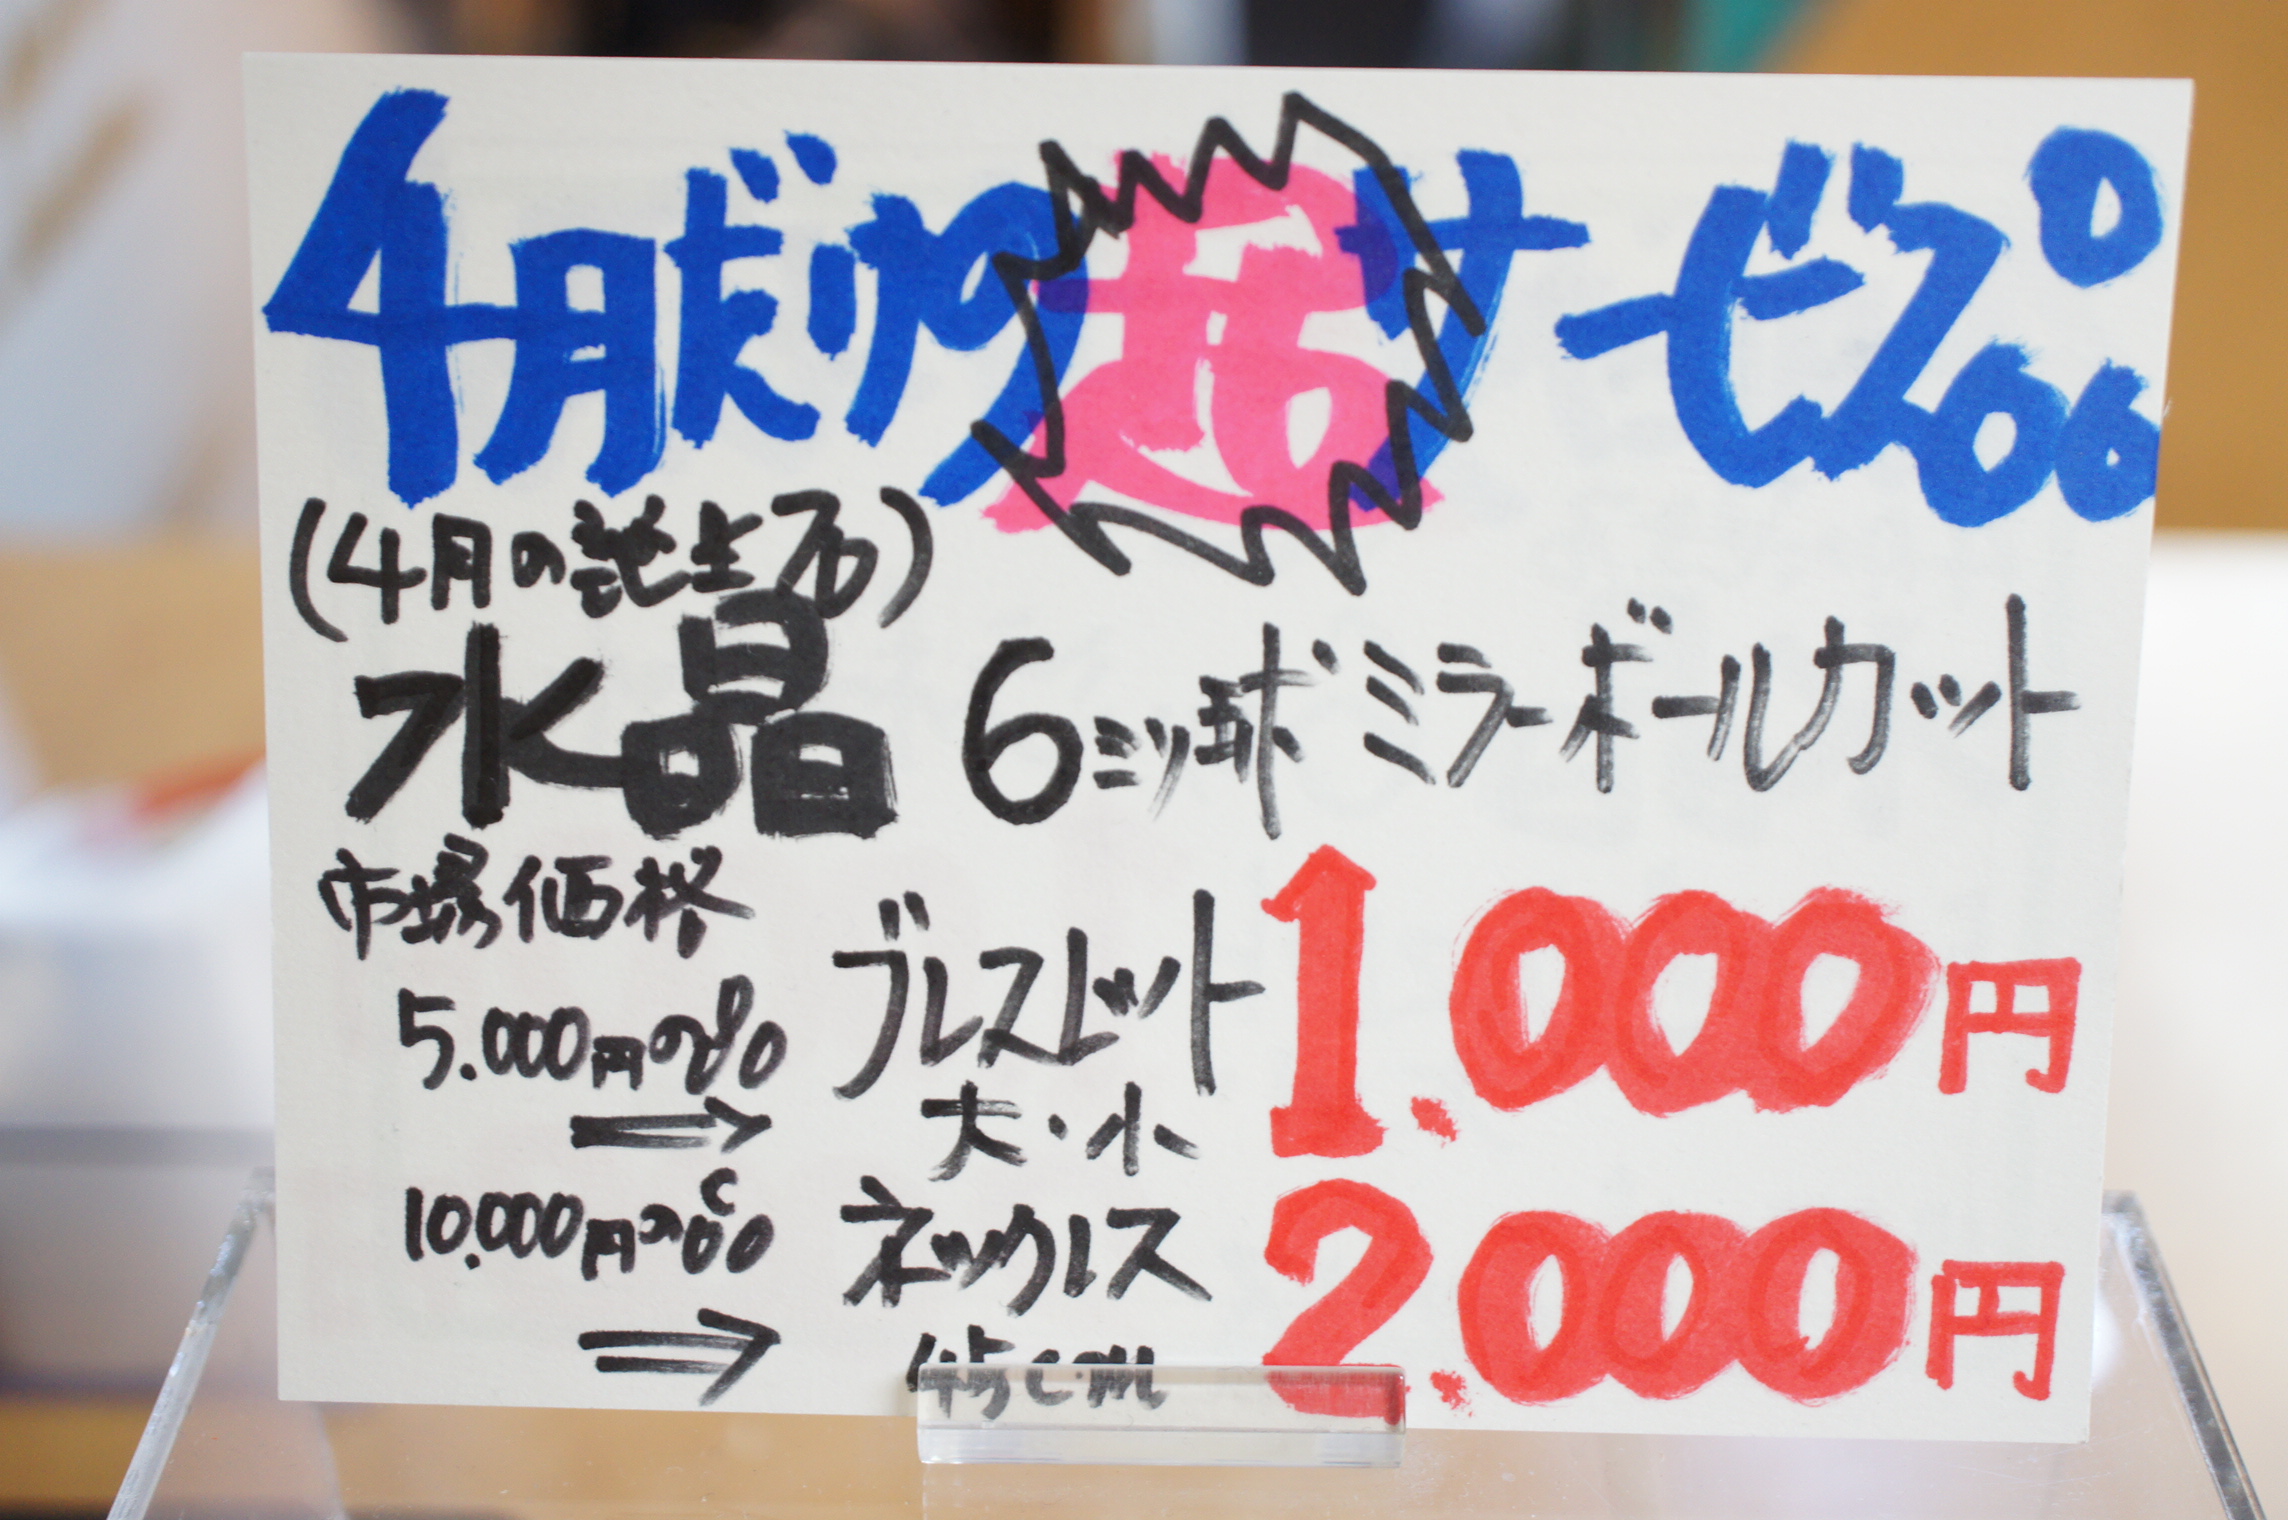 4月だけの超サービス。。。
(4月の誕生石)
水晶 6ミリ球 ミラーボールカット
市場価格
5.000円の品
⇒
ブレスレット
大・小
1.000円
10.000円の品
⇒
ネックレス
45cm
2.000円